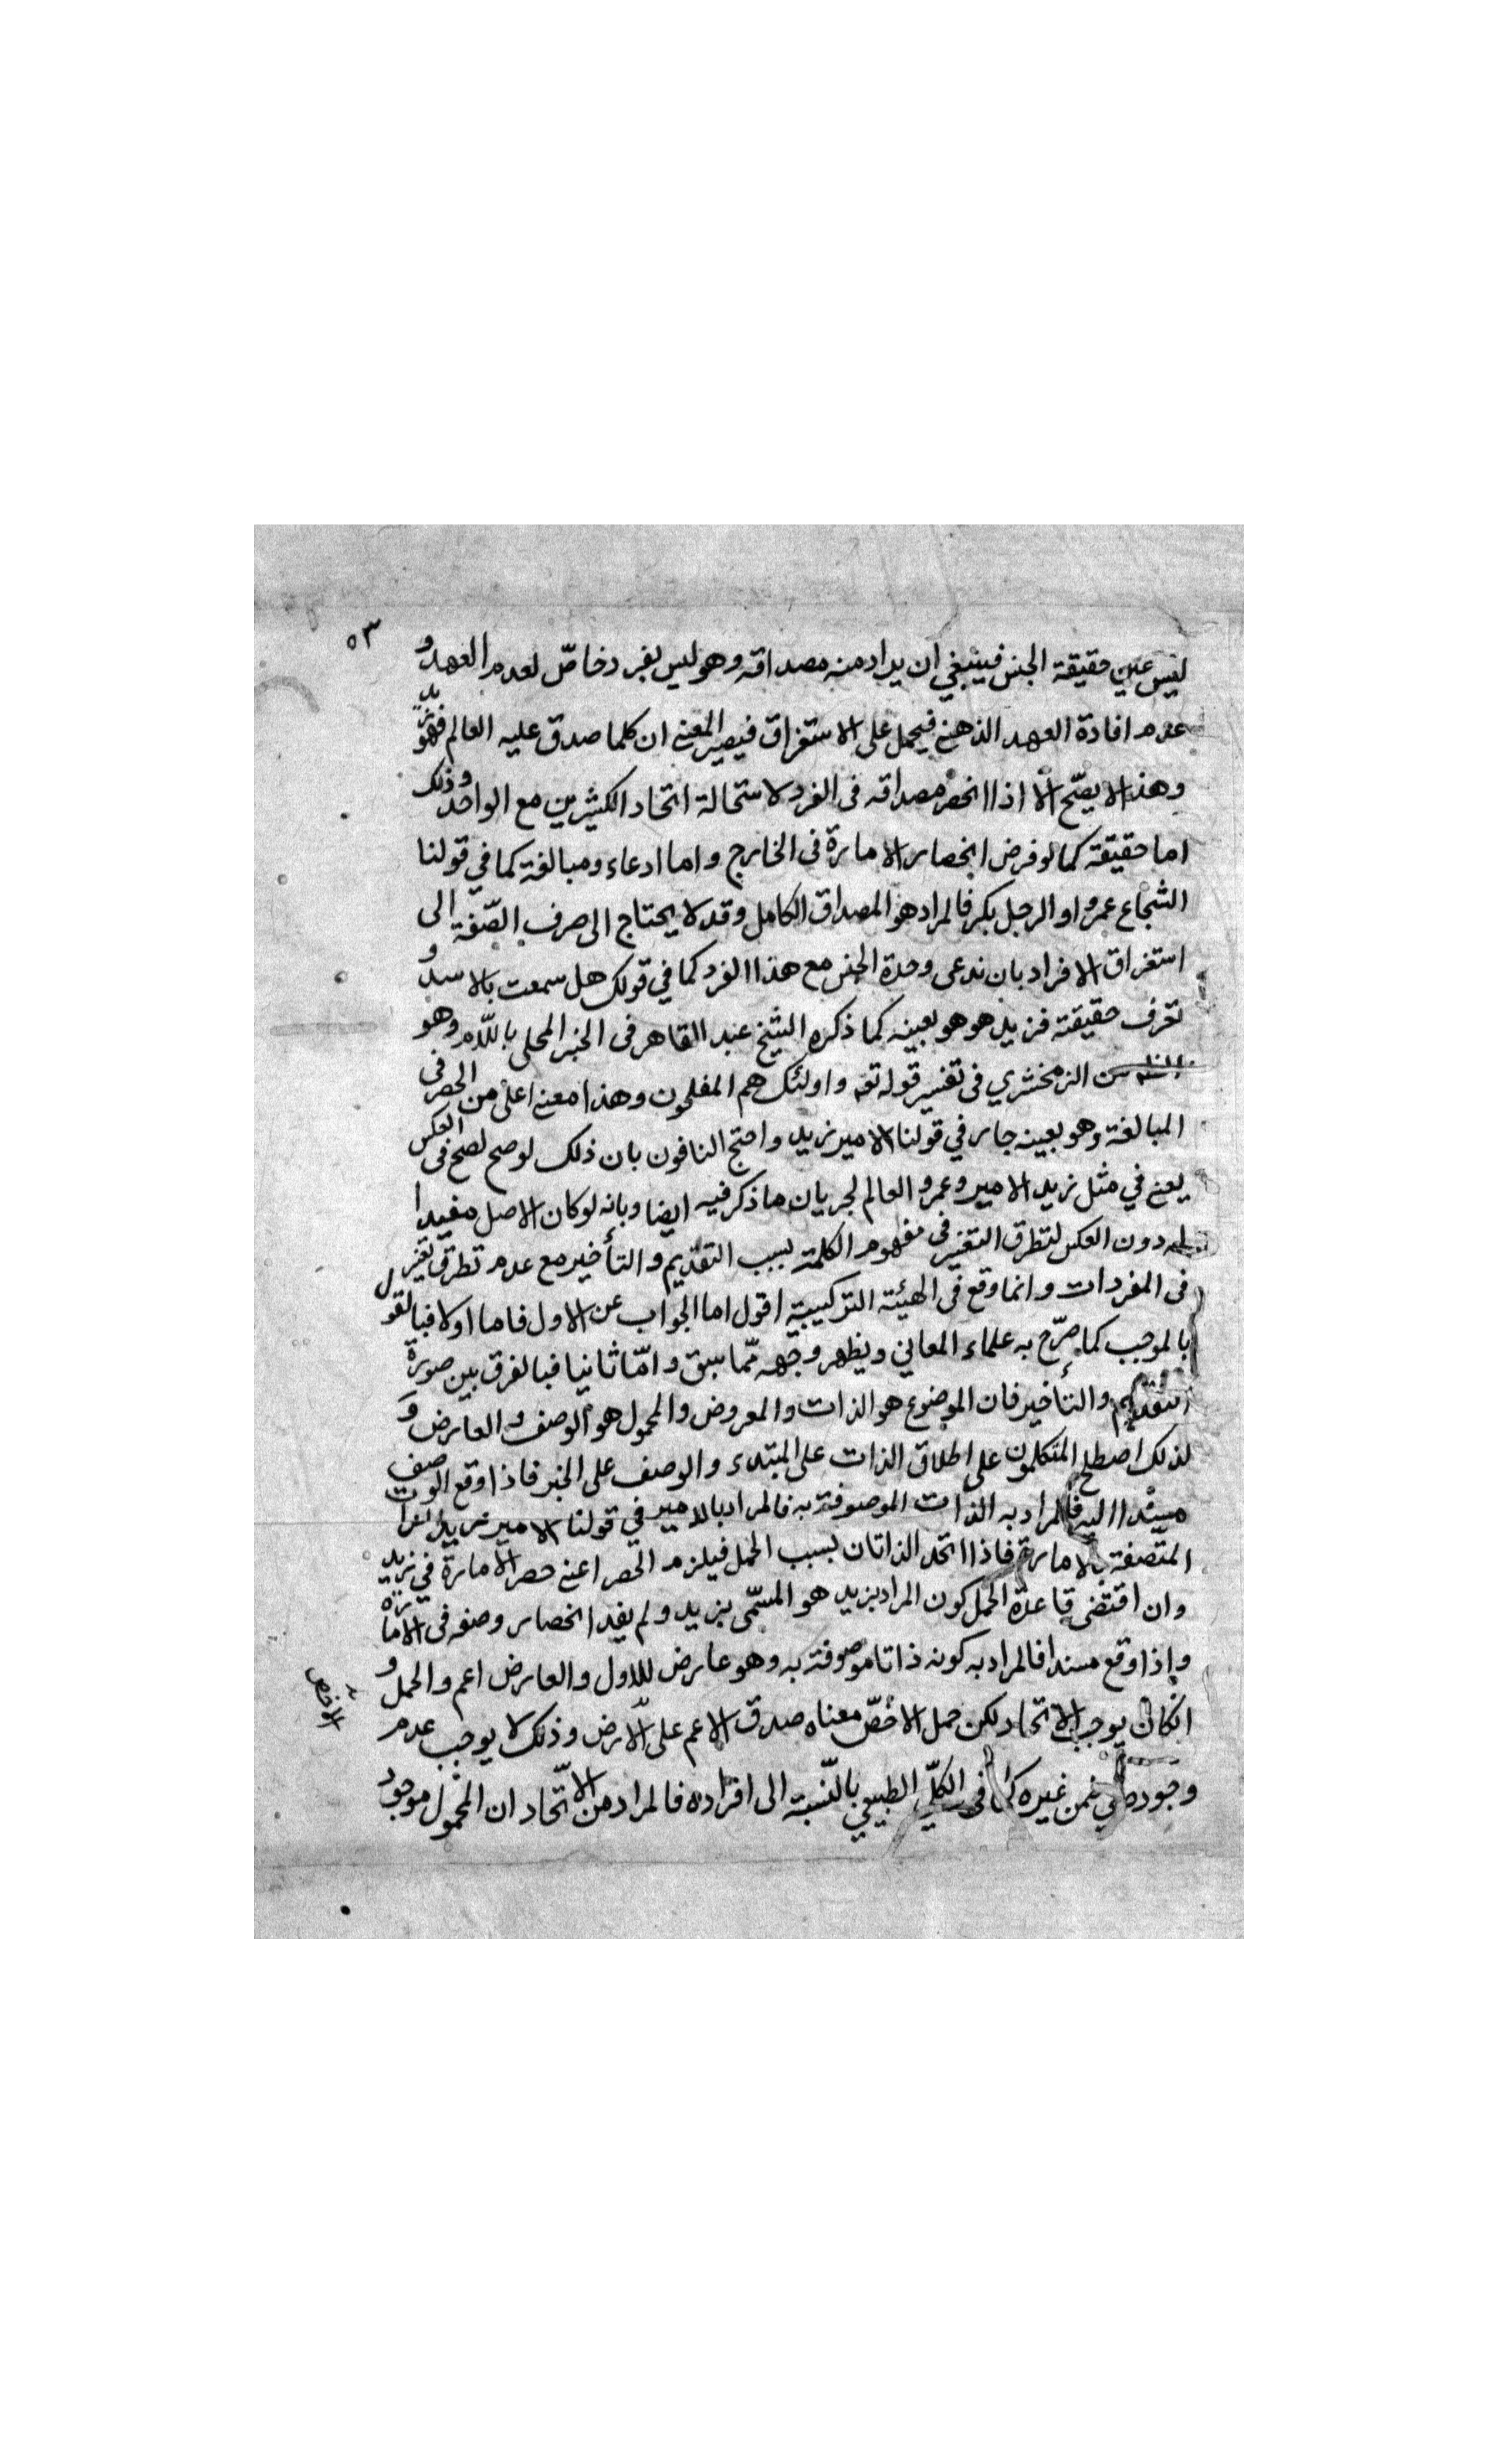 ٥٣
ليس عين حقيقة الجنس فينبغي ان يراد منه مصداقه وهو ليس بفرد خاصّ لعدم العهد و
عدم افادة العهد الذهنى فيحمل على الاستغراق فيصير المعنى ان كلما صدق عليه العالم فهو زيد
وهذا لا يصّح الّا اذا انحصر مصداقه فى الفرد لاستحالة اتحاد الكثيرين مع الواحد وذلك
اما حقيقة كما لو فرض انحصار الامارة فى الخارج واما ادعاء ومبالغة كما في قولنا
الشجاع عمرو او الرجل بكر فالمراد هو المصداق الكامل وقد لا يحتاج الى صرف الصّفة الى
استغراق الافراد بان ندعى وحدة الجنس مع هذا الفرد كما في قولك هل سمعت بالاسد و
تعرف حقيقته فزيد هو هو بعينه كما ذكره الشيخ عبد القاهر فى الخبر المحلى باللّام وهو
الزمخشري فى تفسير قوله تعه واولئك هم المفلحون وهذا معنى اعلى من الحصر فى
المبالغة وهو بعينه جار في قولنا الامير زيد واحتج النافون بان ذلك لو صح لصح فى العكس
يعنى في مثل زيد الامير وعمرو العالم لجريان ما ذكر فيه ايضا وبانه لو كان الاصل مفيدا
له دون العكس لتطرق التغير فى مفهوم الكلمة بسبب التقديم والتأخير مع عدم تطرق تغير
فى المفردات وانما وقع فى الهيئة التركيبية اقول اما الجواب عن الاول فاما اولا فبالقول
بالموجب كما صرّح به علماء المعاني ويظهر وجهه ممّا سبق وامّا ثانيا فبالفرق بين صورة
التقديم والتأخير فان الموضوع هو الذات والمعروض والمحمول هو الوصف والعارض و
لذلك اصطلح المتكلمون على اطلاق الذات على المبتدء والوصف على الخبر فاذا وقع الوصف
مسندا اليه فالمراد به الذات الموصوفة به فالمراد بالامير في قولنا الامير زيد الذات
المتصفة بالامارة فاذا اتحد الذاتان بسبب الحمل فيلزم الحصر اعنى حصر الامارة في زيد
وان اقتضى قاعدة الحمل كون المراد بزيد هو المسمّى بزيد ولم يفد انحصار وصفه فى الامارة
وإذا وقع مسندا فالمراد به كونه ذاتا موصوفة به وهو عارض للاول والعارض اعم والحمل و
انكان يوجب الاتحاد لكن حمل الاخصّ معناه صدق الاعم على الارض وذلك لا يوجب عدم
الاخص
وجوده في ضمن غيره كما فى الكلّي الطبيعي بالنّسبة الى افراده فالمراد من الاتّحاد ان المحمول موجود